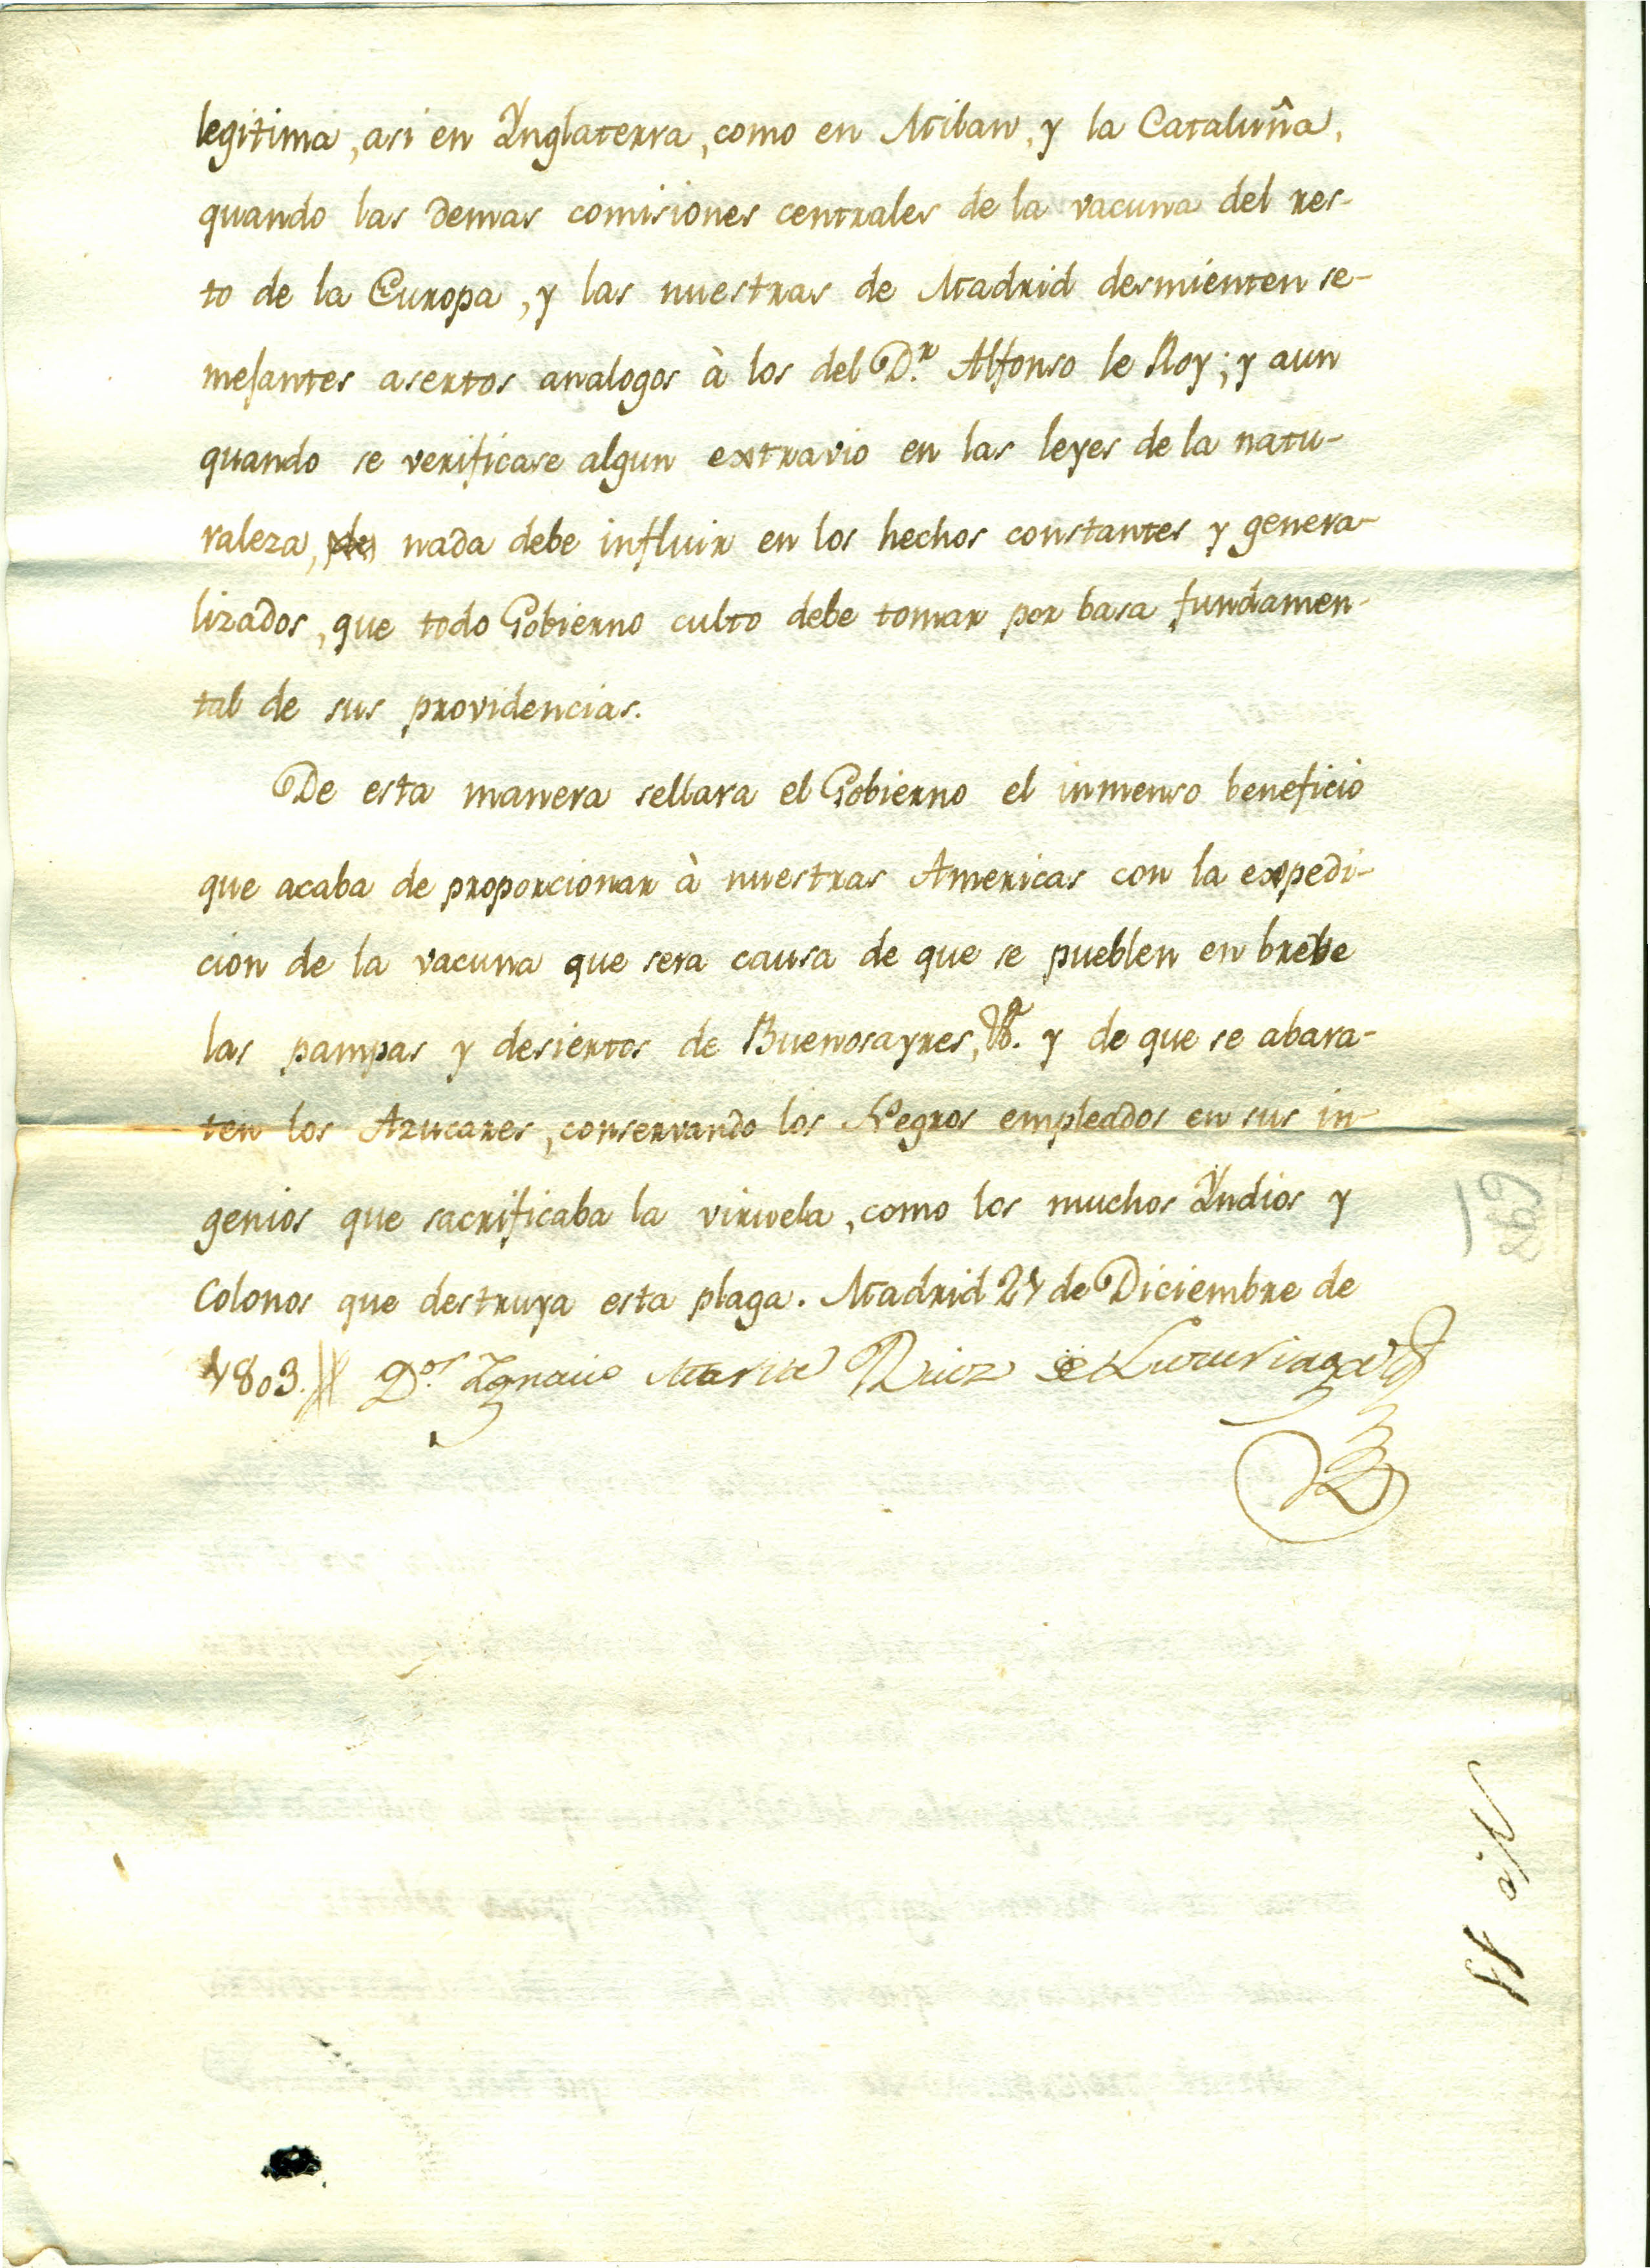 legitima, asi en Ynglaterra, como en Milan, y la Cataluña,
quando las demas comisiones centrales de la vacuna del res-
to de la Europa, y las nuestras de Madrid desmienten se-
mejantes asertos analogos à los del D.r Alfonso le Roy; y aun
quando se verificase algun extravio en las leyes de la natu-
raleza, nada debe influir en los hechos constantes y genera-
lizados, que todo Gobierno culto debe tomar por basa fundamen-
tal de sus providencias.
De esta manera sellara el Gobierno el inmenso beneficio
que acaba de proporcionar à nuestras Americas con la expedi-
cion de la vacuna que sera causa de que se pueblen en brebe
las pampas y desiertos de Buenosayres, &.a y de que se abara-
ten los Azucares, conservando los Negros empleados en sus in-
genios que sacrificaba la viruela, como los muchos Yndios y
Colonos que destruya esta plaga. Madrid 24 de Diciembre de
1803. D.or Ygnacio Maria Ruiz de Luzuriaga
269